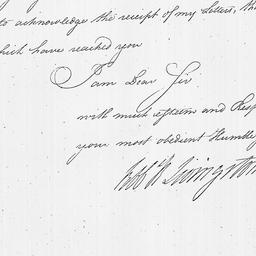 to acknowledge the receipt of my letters, th
hich have reached you
I am Dear Sir
with much esteem and Resp
your most obedient Humble
Rob R Livingston